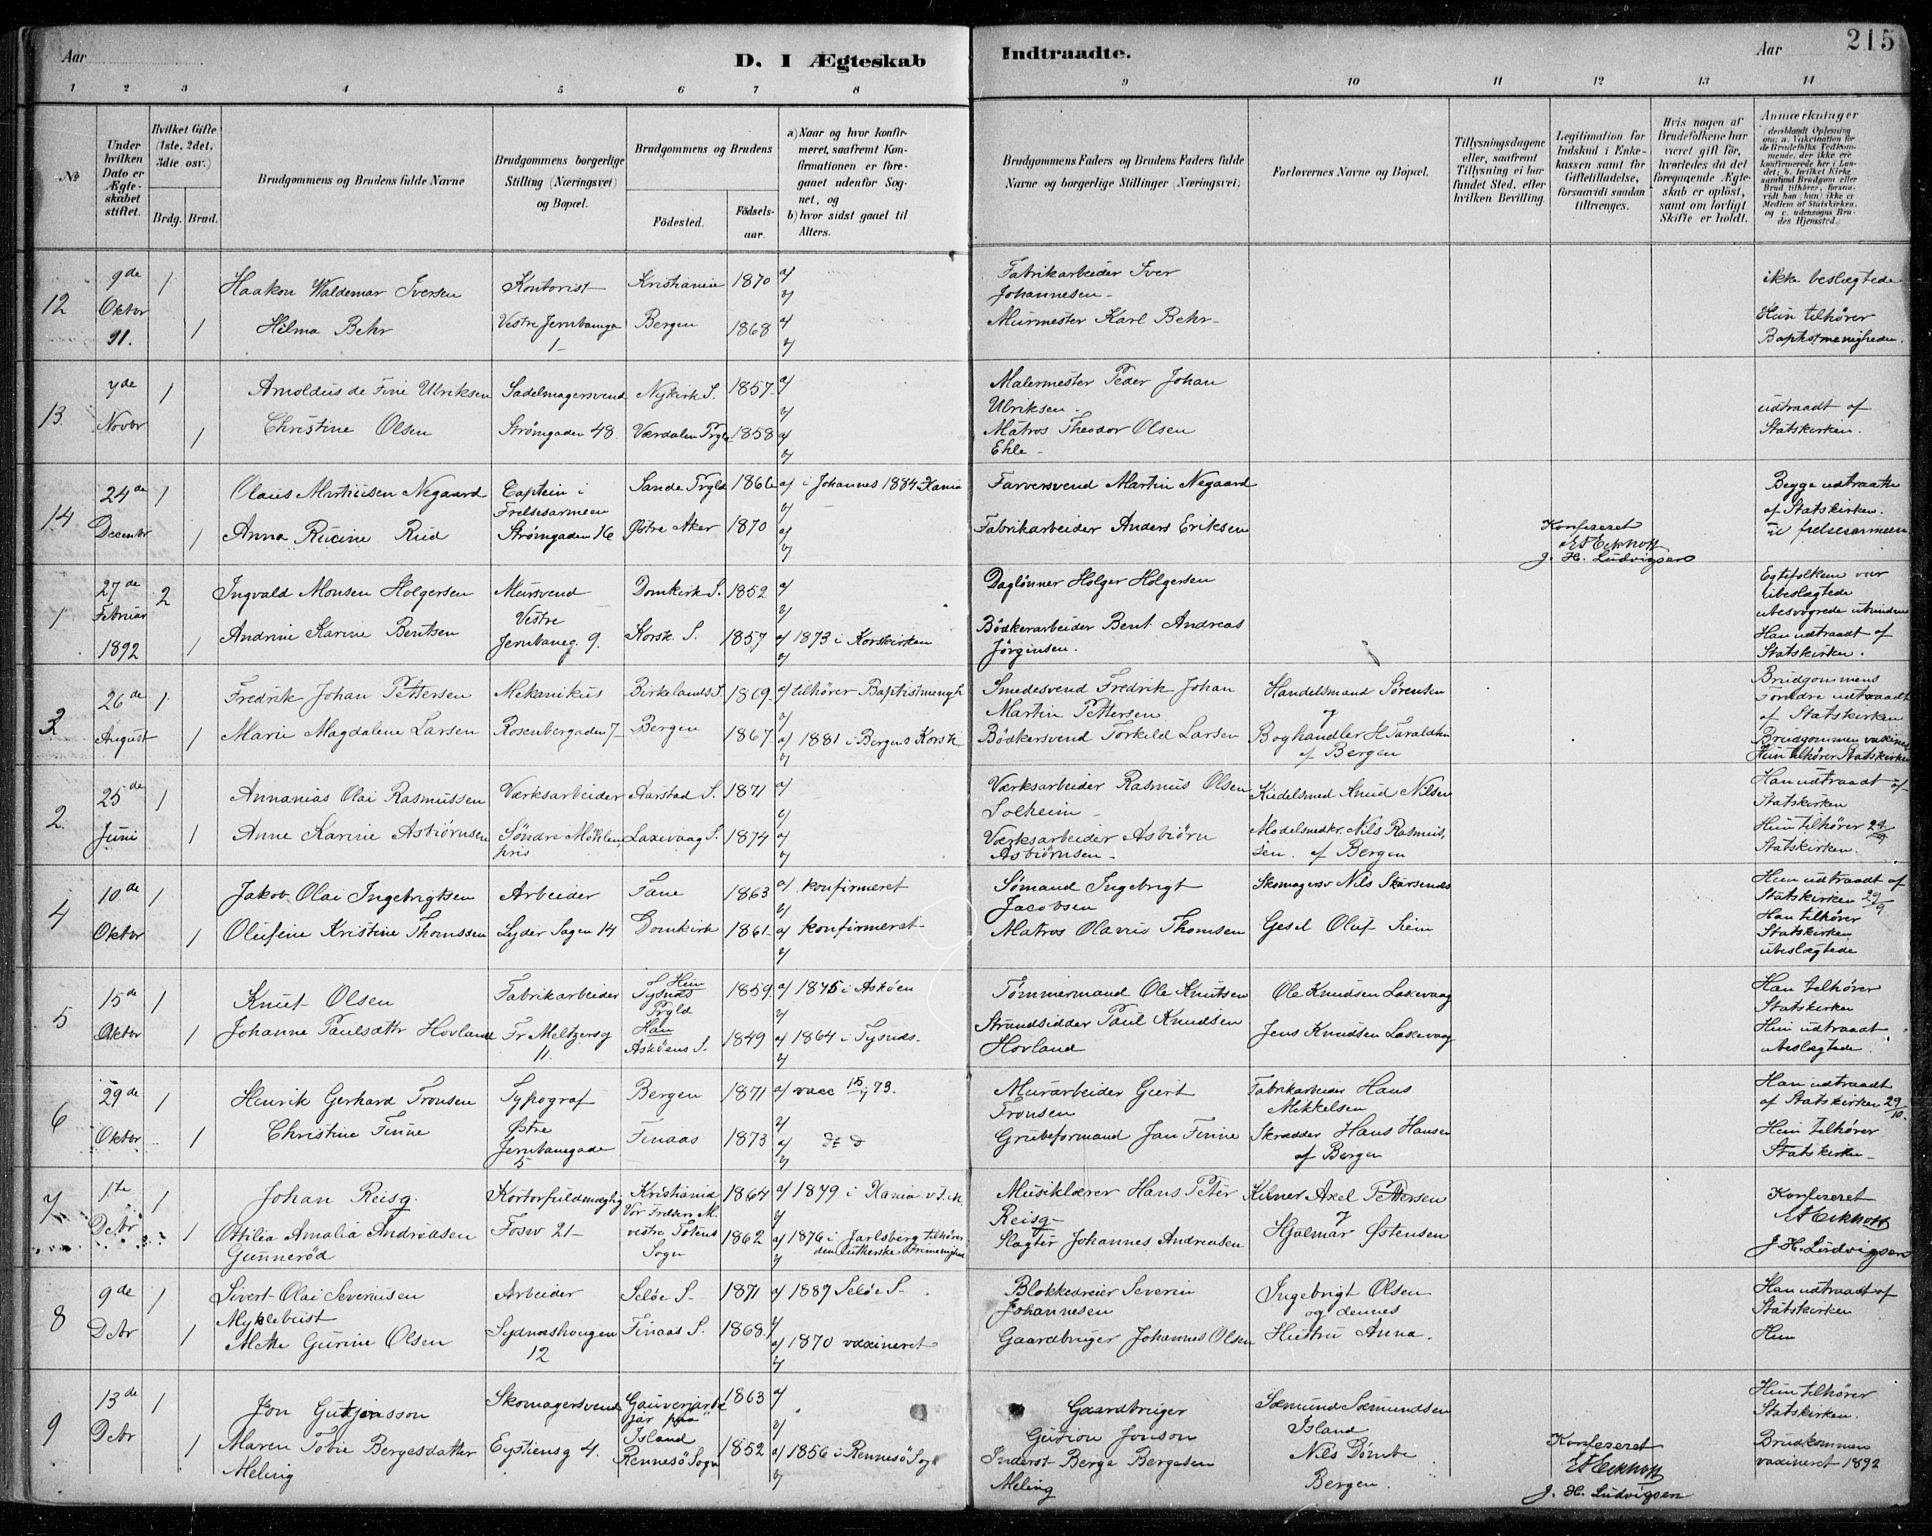 Aar
D. I Ægteskab
Indtraadte.
Aar
215
1 2 3 4 5 6 7 8 9 10 11 12 13 14
№
Under hvilken Dato er Ægteskabet stiftet.
Hvilket Gifte (1ste, 2det, 3die osv.)
Brdg. Brud.
Brudgommens og Brudens fulde Navne
Brudgommens borgerlige Stilling (Næringsvei) og Bopæl.
Brudgommens og Brudens
Fødested.
Fødselsaar.
a) Naar og hvor konfirmeret, saafremt Konfirmationen er foregaaet udenfor Sognet, og
b) hvor sidst gaaet til Alters.
Brudgommens Faders og Brudens Faders fulde Navne og borgerlige Stillinger (Næringsvei)
Forlovernes Navne og Bopæl.
Tillysningsdagene eller, saafremt Tillysning ei har fundet Sted, efter hvilken Bevilling.
Legitimation for Indskud i Enkekassen samt for Giftetilladelse, forsaavidt saadan tiltrænges.
Hvis nogen af Brudefolkene har været gift før, hvorledes da det foregaaende Ægteskab er opløst, samt om lovligt Skifte er holdt.
Anmærkninger
12 9de Oktbr 91. 1 Haakon Waldemar Iversen Kontorist Kristiania 1870 a/ b/ Fabrikarbeider Iver Johannesen ikke beslægtede
1 Hilma Behr Vestre Jernbanega 1 Bergen 1868 a/ b/ Murmester Karl Behr Hun tilhører Baptistmenigheden.
13 7de Novbr 1 Arnoldus de Fine Ulriksen Sadelmagersvend Nykirk S. 1857 a/ b/ Malermester Peder Johan Ulriksen udtraadt af Statskirken.
1 Christine Olsen Strømgaden 48 Værdalen Prgld 1858 a/ b/ Matros Theodor Olsen Ehle
14 24de Decembr 1 Olaus Martinsen Negaard Captein i Frelsesarmeen Sande Prgld 1866 a/ i Johannes 1884 Kania b/ Farversvend Martin Negaard Begge udtraadte af Statskirken.
1 Anna Rucine Rud Strømgaden 16 Østre Aker 1870 a/ b/ Fabrikarbeider Anders Eriksen Konfereret E Eckhoff J. H. Ludvigsen til frelsesarmeen
1 27de Februar 1892 2 Ingvald Monsen Holgersen Mursvend Vestre Domkirk S. 1852 a/ b/ Daglønner Holger Holgersen Egtefolkene var ubeslægtede ubesvogrede
1 Andrine Karine Bentsen Jernbaneg. 9. Korsk. S. 1857 a/ 1873 i Korskirken b/ Bødkerarbeider Bent Andreas Jörginsen. Han udtraadt af Statskirken.
3 26de August 1 Fredrik Johan Pettersen Mekanikus Birkelands S. 1869 a/ tilhører Baptistmengh b/ Smedesvend Fredrik Johan Martin Pettersen Handelsmand Sörensen Brudgommens Forældre udtraadt af Statskirken
1 Marie Magdalene Larsen Rosenbergaden 7 Bergen 1867 a/ 1881 i Bergens Korsk b/ Bødkersvend Torkild Larsen Boghandler H Taraldsen af Bergen Brudgommen vaxineret Hun tilhører Statskirken
2 25de Juni 1 Annanias Olai Rasmussen Værksarbeider Aarstad S. 1871 a/ b/ Værksarbeider Rasmus Olsen Solheim Kjedelsmed Knud Nilsen Han udtraadt af Statskirken
1 Anne Karine Asbiörnsen Søndre Møhlenpris Laxevaag S. 1874 a/ b/ Værksarbeider Asbiörn Asbiørnsen Modelsnedkr. Nils Rasmussen. af Bergen Hun tilhører Statskirken.
4 10de Oktbr 1 Jakob Olai Ingebrigtsen Arbeider Fane 1863 a/ konfirmeret b/ Sømand Ingebrigt Jacobsen Skomagersv Nils Skarsendo Hun udtraadt af Statskirken 29/9
1 Olufine Kristine Thomssen Lyder Sagen 14 Domkirk 1861 a/ konfirmeret b/ Matros Olavus Thomsen Gesel Oluf Siem Han tilhører Statskirken ubeslægtede
5 15de Oktbr 1 Knut Olsen Fabrikarbeider Hun Tysnæs Prgld 1859 a/ 1875 i Askøen b/ Tømmermand Ole Knutsen Ole Knudsen Laxevaag Han tilhører Statskirken
1 Johanne Paulsdttr Hovland Fr Meltzersg 11 Han Askøens S. 1849 a/ 1864 i Tysnds. b/ Strandsidder Paul Knudsen Hovland Jens Knudsen Laxevaag Hun udtraadt ubeslægtede.
6 29de Oktbr 1 Henrik Gerhard Tronsen Typograf Bergen 1871 a/ vacc 15/ 73. b/ Murarbeider Giert Tronsen Fabrikarbeider Hans Mikkelsen Han udtraadt af Statskirken 29/10.
1 Christine Finne Østre Jernbanegade 5 Finaas 1873 a/ b/ Grubeformand Jan Finne Skrædder Hans Hansen af Bergen Hun tilhører Statskirken
7 1te Decbr 1 Johan Reisg Kortorfuldmægtig Kristiania Vor Frelsers M. 1864 a/ 1879 i Kania b/ Musiklærer Hans Peter Reisg Kelner Axel Pettersen Konfereret E Eckhoff
1 Ottilia Amalia Andreasen Gunnerød Fosw 21 vestre Totens Sogn 1862 a/ 1876 i Jarlsberg tilhører den lutherske Frimenighed b/ Slagter Johannes Andreasen Hjalmar Østensen J. H. Ludvigsen
8 9de Decbr 1 Sivert Olai Severinsen Myklebust Arbeider Seløe S. 1871 a/ 1887 Seløe S. b/ Blokkedreier Severin Johannesen Ingebrigt Olsen og dennes Han udtraadt af Statskirken
1 Mette Gurine Olsen Sydnæshougen 12 Finaas S. 1868 a/ 1870 vaxineret b/ Gaardbruger Johannes Olsen Hustru Anna. Hun
9 13de Decbr 1 Jon Gutjonsson Skomagersvend Gauverjarbæjar paa Island 1863 a/ b/ Gaardbruger Gution Jonson Sæmunde Sæmundsen Island Hun tilhører Statskirken.
1 Maren Tobie Bergesdatter Meling Eystiensg 4. Rennesö Sogn 1852 a/ 1856 i Rennesö Sogn b/ Inderst Berge Bergesen Meling Nils Dömbe Bergen. Konfereret E Eckhoff J. H. Ludvigsen Brudkommen vaxineret 1892